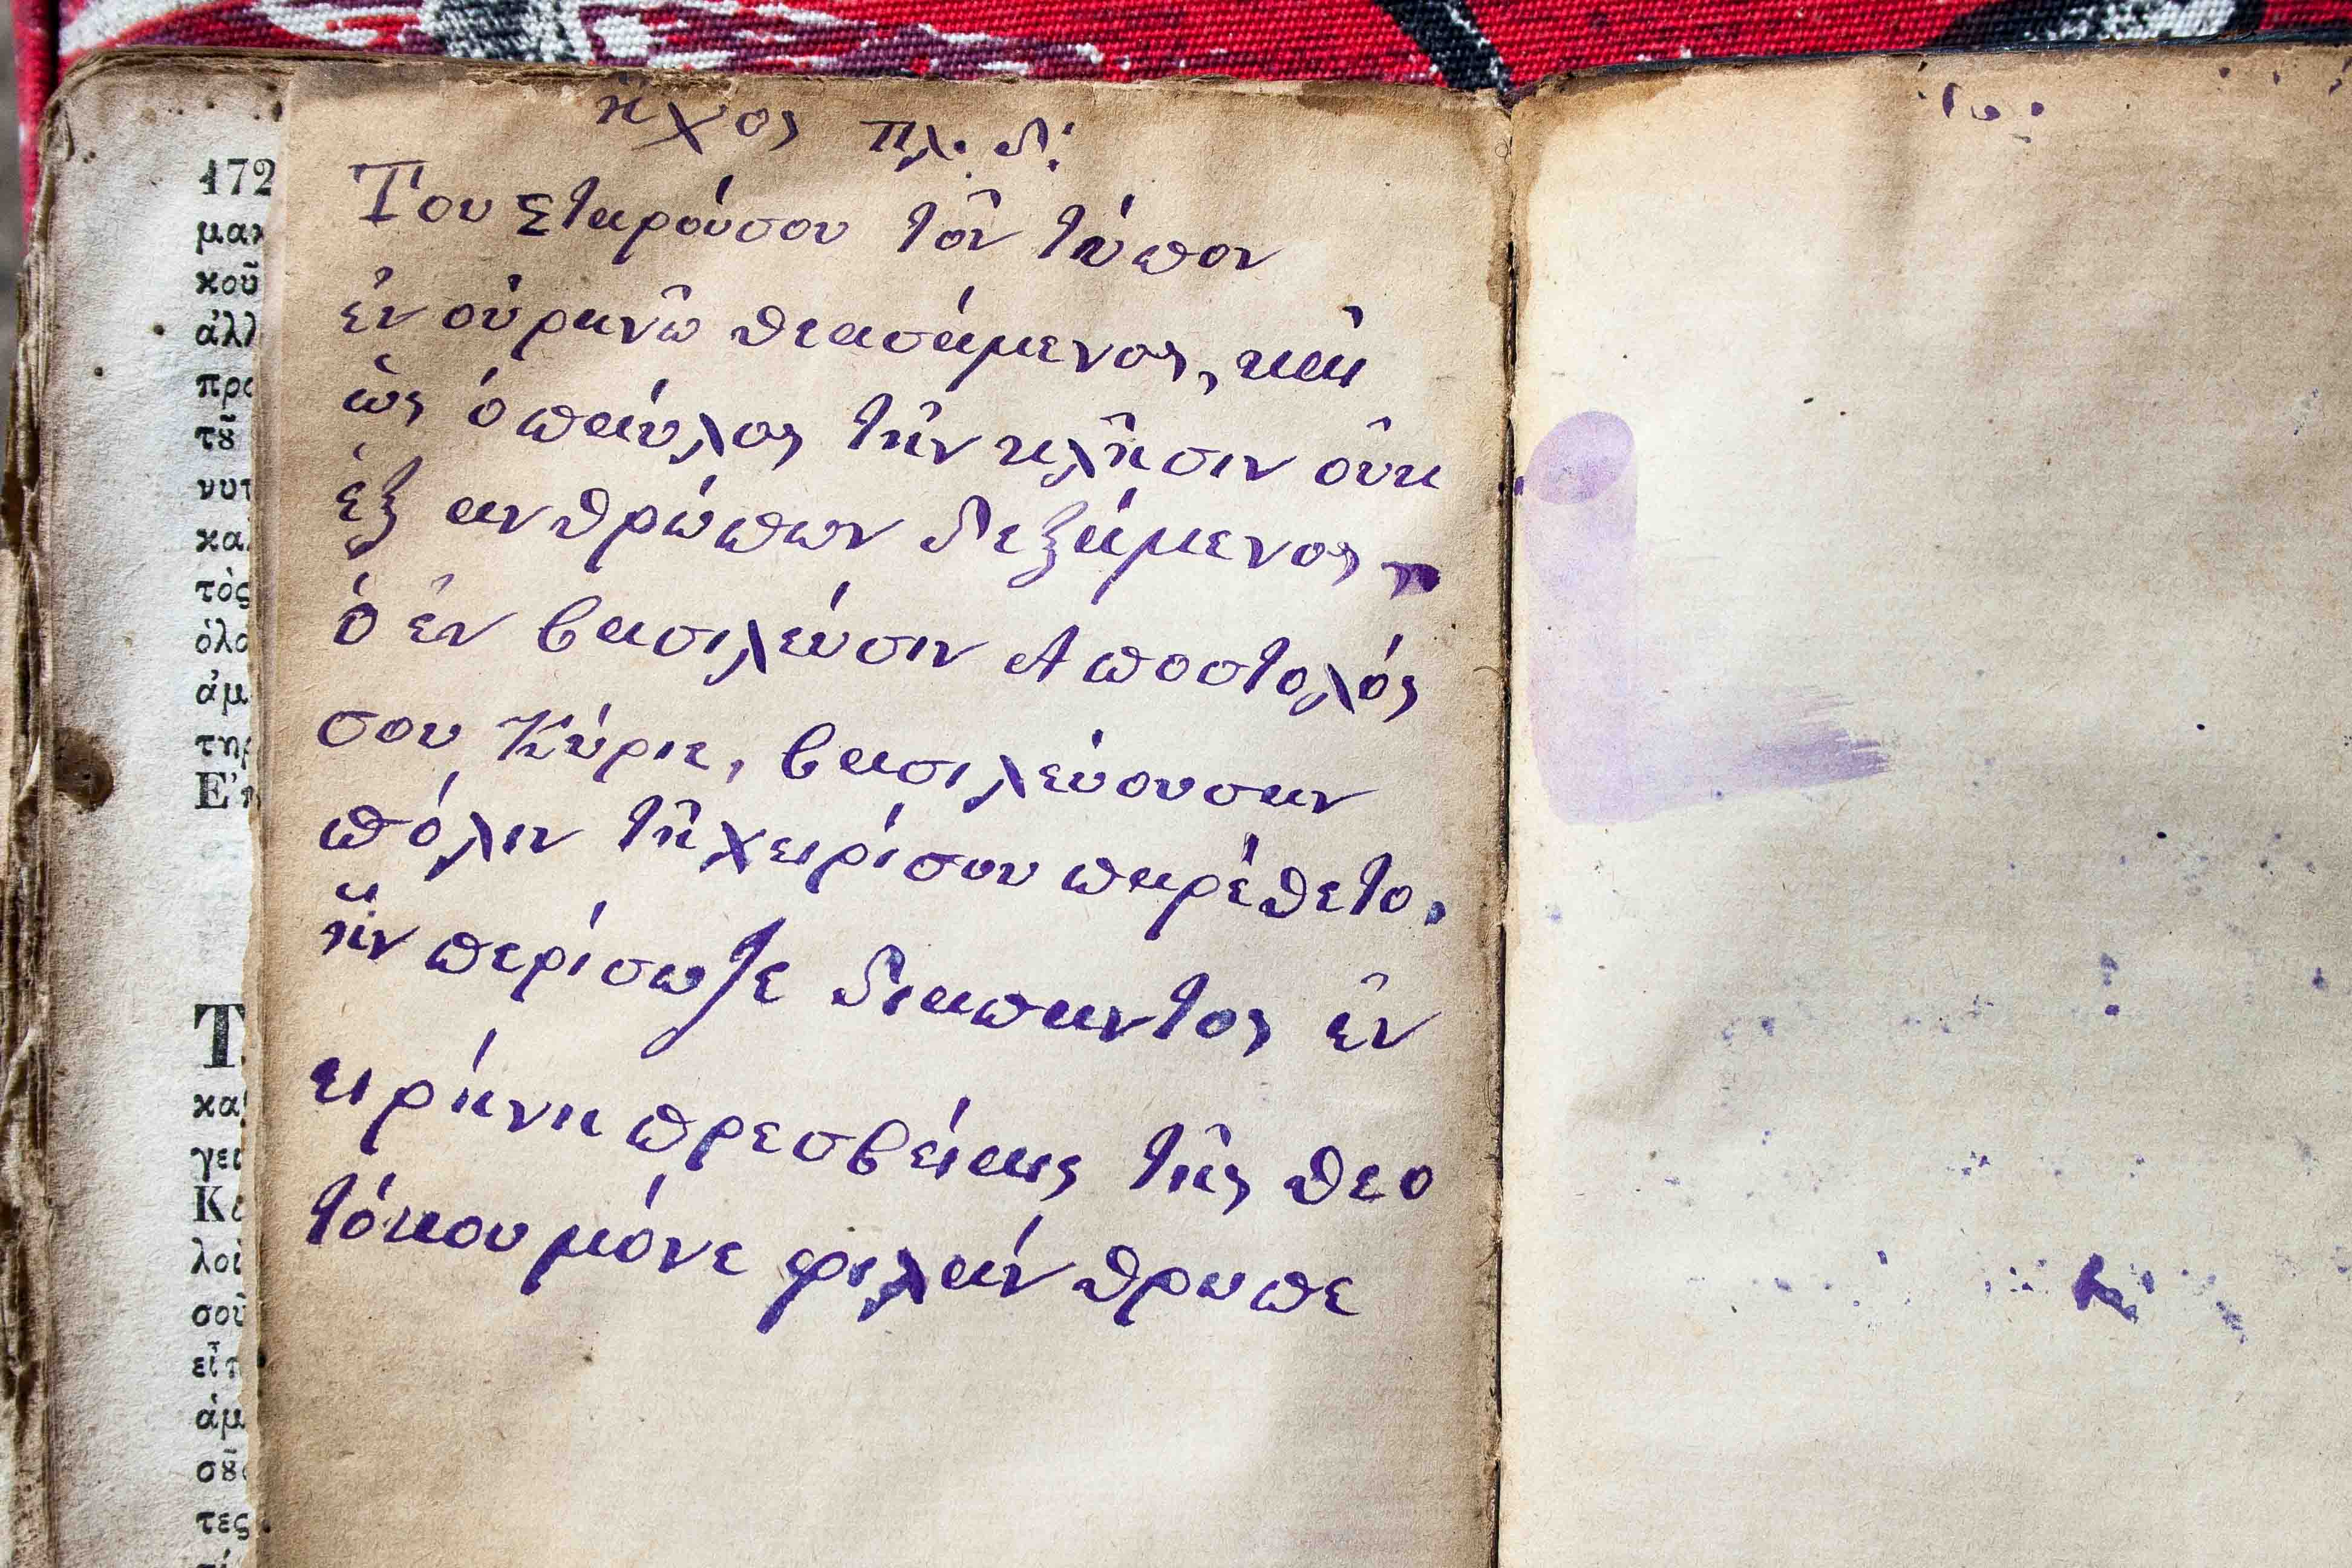 172
μακ
κοῦ
ἀλλ
προ
τȣ͂
νυτ
και
τὸς
ὁλο
ἁμ
τηρ
Ε'π
Τ
κα
γει
Κα
λοὶ
σοῦ
εἶπ
ἁμ
σȣ͂
τες
ἦχος πλ. δ'.
Του Σταρούσου τὸν τύπον
ἐν οὐρανῶ θεασάμενος, καὶ
ὡς ὁ παύλος τὴν κλῆσιν οὐκ
ἐξ ανθρώπων δεξάμενος,
ὁ ἐν βασιλεύσιν Αποστολός
σου Κύριε, βασιλεύουσαν
πόλιν τῆ χειρί σου παρέθετο,
ἣν περίσωζε διαπαντος ἐν
ειρήνη πρεσβείαις τῆς θεο
τόκου μόνε φιλάνθρωπε